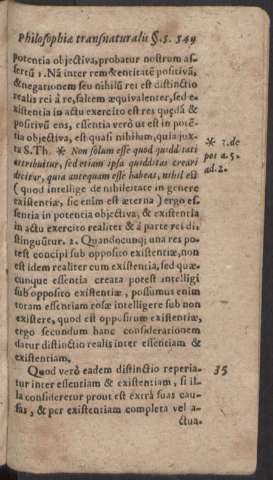 Philosophiæ transnaturalis §. 5. 549
potentia objectiva, probatur nostrum as-
sertũ 1. Nã inter rem & entitatẽ positivã,
& negationem seu nihilũ rei est distinctio
realis rei á re, saltem æquivalenter, sed e-
xistentia in actu exercito est res quędã &
positivũ ens, essentia verò ut est in potẽ-
tia objectiva, est quasi nihilum, quia jux-
ta S. Th. * Non solum esse quod quidditati
attribuitur, sed etiam ipsa quidditas creari
dicitur, quia antequam esse habeat, nihil est
( quod intellige de nihileitate in genere
existentiæ, sic enim est æterna ) ergo es-
sentia in potentia objectiva, & existentia
in actu exercito realiter & á parte rei di-
stinguũtur. 2. Quandocunq; una res po-
test concipi sub opposito existentiæ, non
est idem realiter cum existentia, sed quæ-
cunque essentia creata potest intelligi
sub opposito existentiæ, possũmus enim
totam essentiam rosæ intelligere sub non
existere, quod est oppositum existentiæ,
ergo secundum hanc considerationem
datur distinctio realis inter essentiam &
existentiam.
Quod verò eadem distinctio reperia-
tur inter essentiam & existentiam, si il-
la consideretur prout est extrà suas cau-
sas, & per existentiam completa vel a-
ctua-
* 3. de
pot a. 5.
ad. 2.
35